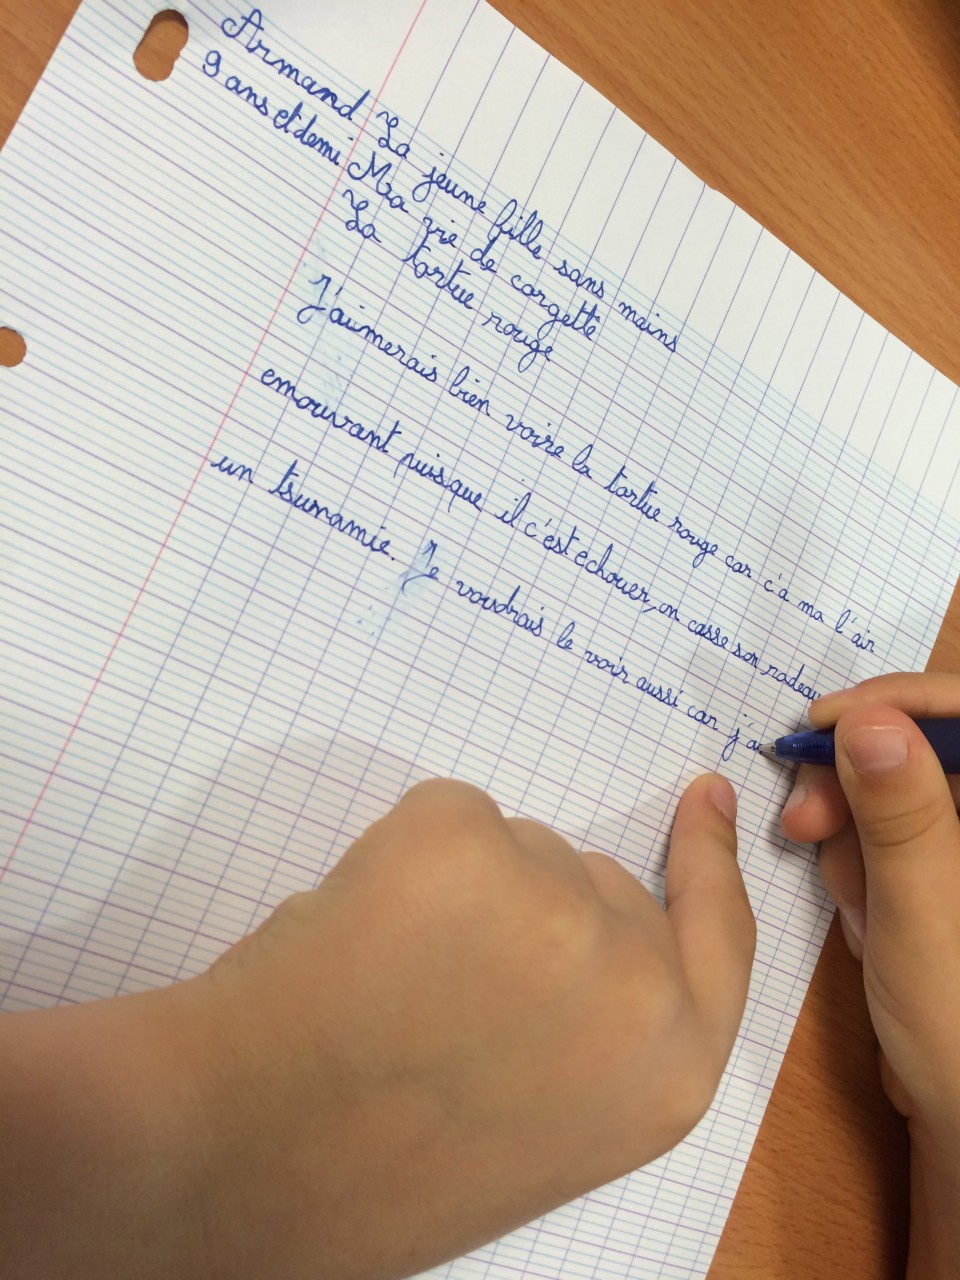 Armand La jeune fille sans mains
9 ans et demi Ma vie de corgette
La tortue rouge
J'aimerais bien voire la tortue rouge car c'a ma l'air
emouvant puisque il c'est echouer, on casse son radeau
un tsunamie. Je voudrais le voir aussi car j'a